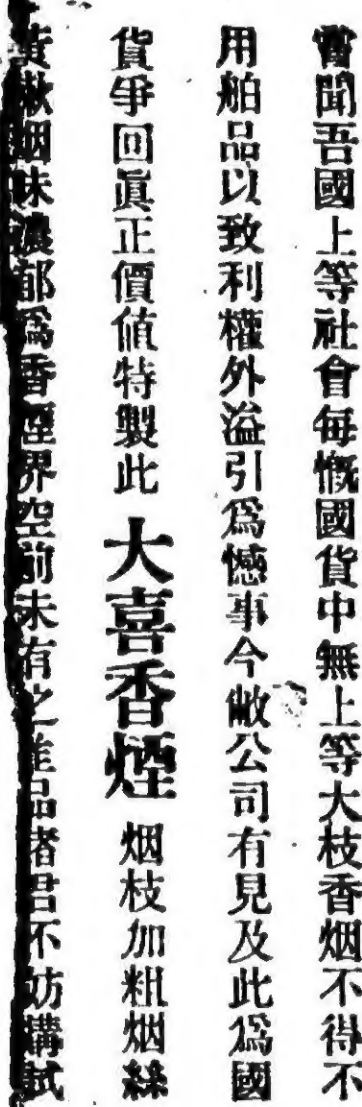 嘗聞吾國上等社會每慨國貨中無上等大枝香烟不得不
用舶品以致利權外溢引爲憾事今敝公司有見及此爲國
貨爭回眞正價値特製此大喜香煙烟枝加粗烟絲
黃嫩烟味濃郁爲香煙界空前未有之佳品諸君不妨購試